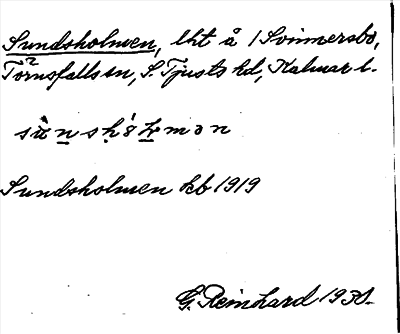 Sundsholmen, lht å 1 Svinnersbo,
Törnsfalls sn, S. Tjusts hd, Kalmar l.
Sundsholmen kb 1919
G. Reinhard 1930.